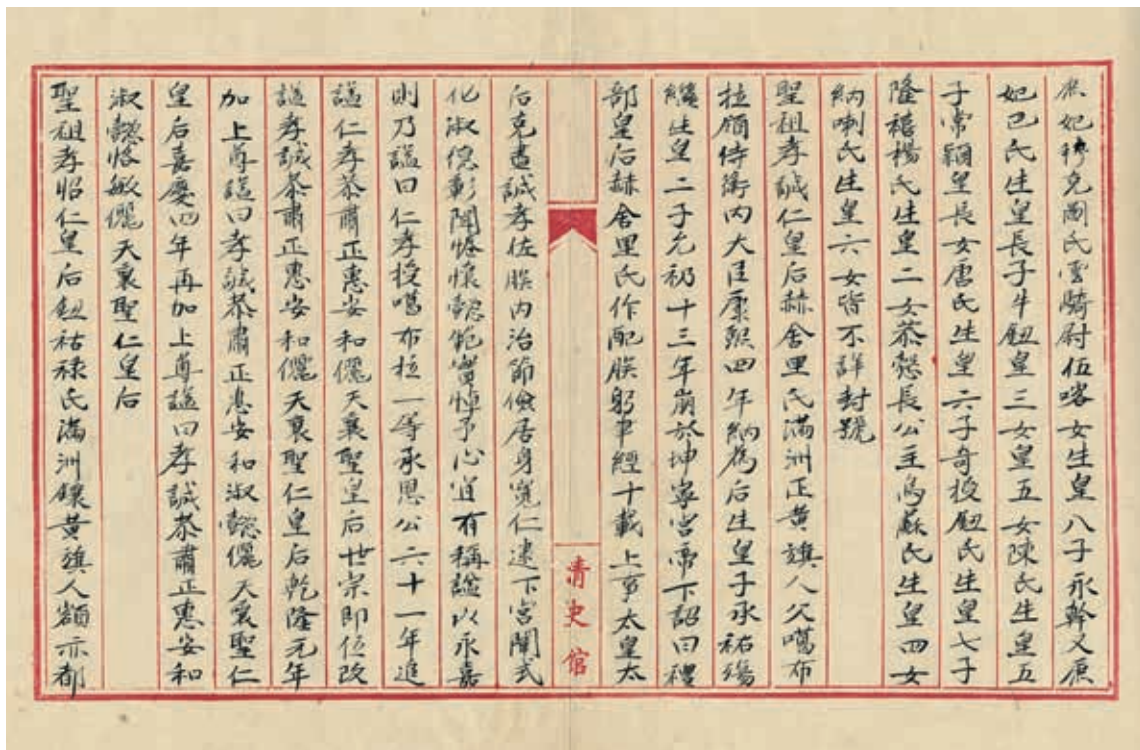 庶妃穆克圖氏雲騎尉伍喀女生皇八子永幹又庶
妃巴氏生皇長子牛鈕皇三女皇五女陳氏生皇五
子常穎皇長女唐氏生皇六子奇授鈕氏生皇七子
隆禧楊氏生皇二女恭慤長公主烏蘇氏生皇四女
納喇氏生皇六女皆不詳封號
聖祖孝誠仁皇后赫舍里氏滿洲正黃旗人父噶布
拉領侍衛內大臣康熙四年納為后生皇子承祜殤
繼生皇二子允礽十三年崩於坤寧宮帝下詔曰禮
部皇后赫舍里氏作配朕躬甲經十載上事太皇太
清史館
后克盡誠孝佐朕內治節儉居身寬仁逮下宮闈式
化淑德彰聞憶懷懿範實悼予心宜有稱諡以永嘉
則乃諡曰仁孝授噶布拉一等承恩公六十一年追
諡仁孝恭肅正惠安和儷天襄聖皇后世宗即位改
諡孝誠恭肅正惠安和儷天襄聖仁皇后乾隆元年
加上尊諡曰孝誠恭肅正惠安和淑懿儷天襄聖仁
皇后嘉慶四年再加上尊諡曰孝誠恭肅正惠安和
淑懿恪敏儷天襄聖仁皇后
聖祖孝昭仁皇后鈕祜祿氏滿洲鑲黃旗人額亦都